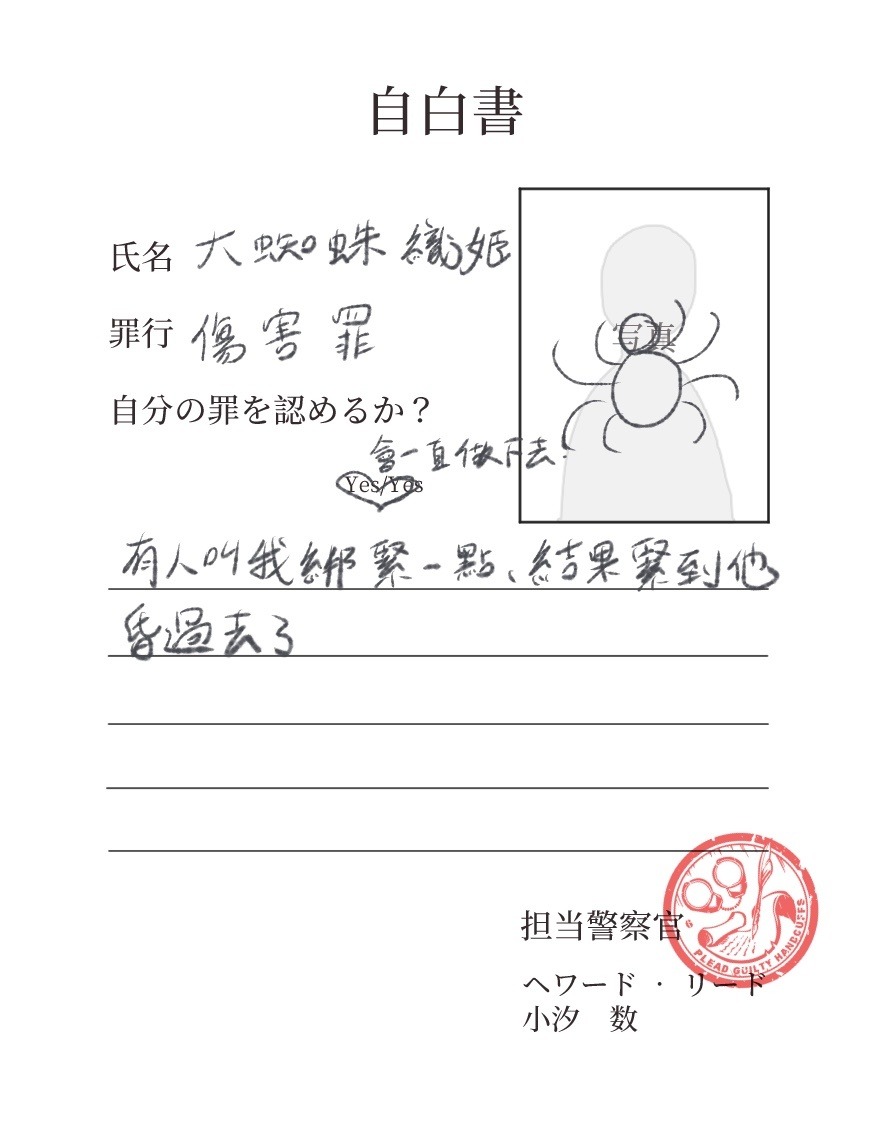 自白書
氏名 大蜘蛛織姬
罪行 傷害罪
自分の罪を認めるか？
會一直做下去!
Yes/Yes
写真
有人叫我綁緊一點、結果緊到他
昏過去了
担当警察官
ヘワード · リード
小汐 数
6 PLEAD GUILTY HANDCUFFS